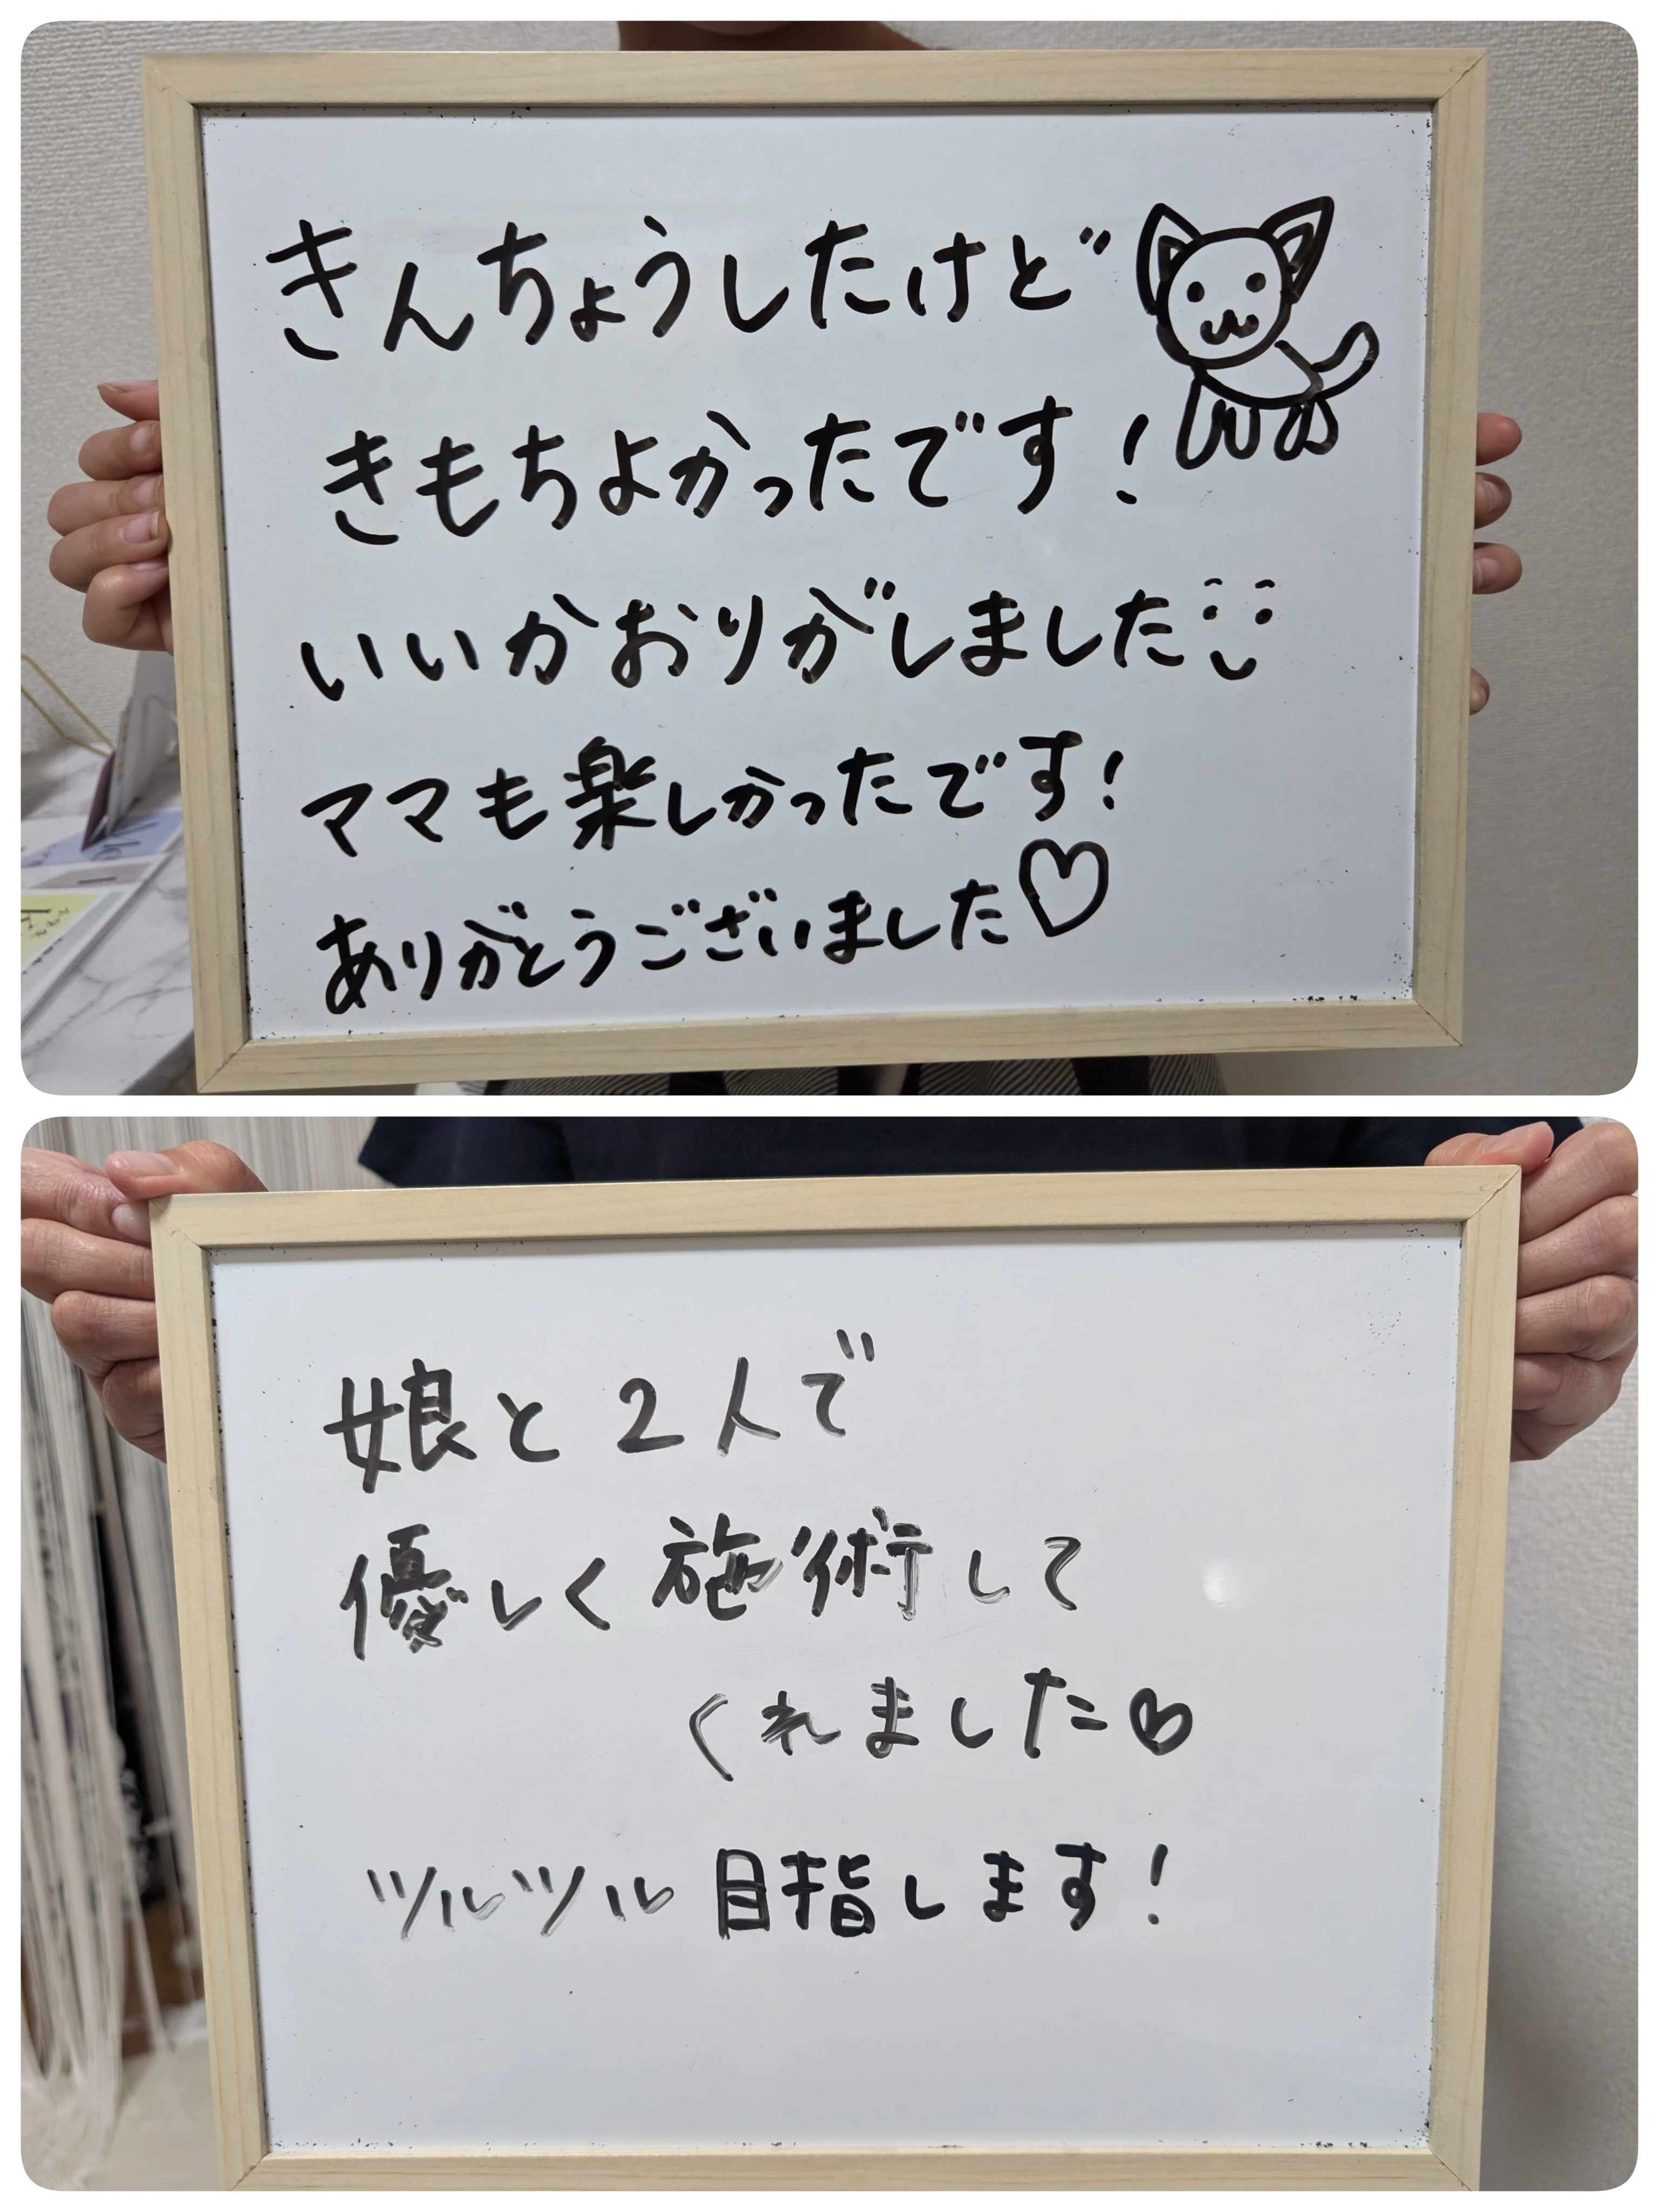 きんちょうしたけど
きもちよかったです！
いいかおりがしました
ママも楽しかったです！
ありがとうございました♡
娘と2人で
優しく施術して
くれました♡
ツルツル目指します！